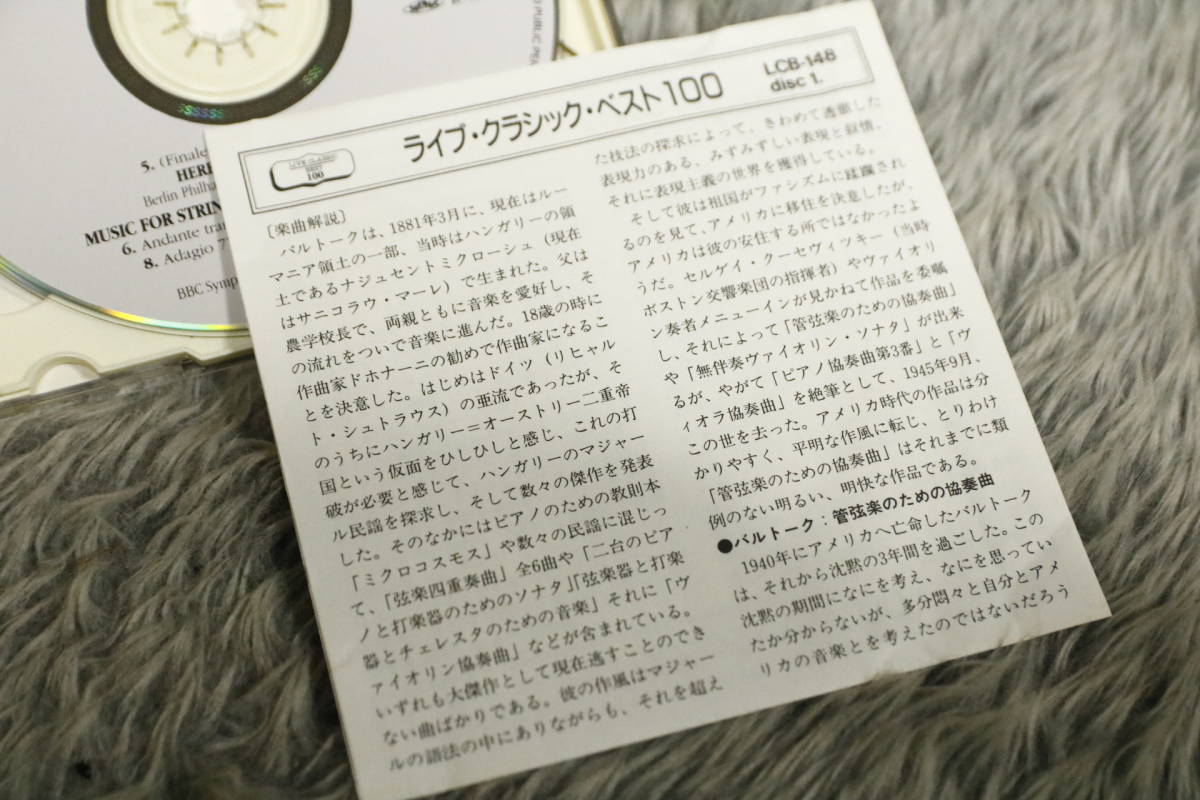 PUBLIC
5. (Finale
Berlin Philha
MUSIC FOR STRIN
6. Andante tra
8. Adagio 7
BBC Symp
ライブ・クラシック・ベスト100
LCB-148
disc 1.
LIVE CLASSIC
BEST
100
〔楽曲解説〕
バルトークは、1881年3月に、現在はルー
マニア領土の一部、当時はハンガリーの領
土であるナジュセントミクローシュ（現在
はサニコラウ・マーレ）で生まれた。父は
農学校長で、両親ともに音楽を愛好し、そ
の流れをついで音楽に進んだ。18歳の時に
作曲家ドホナーニの勧めで作曲家になるこ
とを決意した。はじめはドイツ（リヒャル
ト・シュトラウス）の亜流であったが、そ
のうちにハンガリー＝オーストリー二重帝
国という仮面をひしひしと感じ、これの打
破が必要と感じて、ハンガリーのマジャー
ル民謡を探求し、そして数々の傑作を発表
した。そのなかにはピアノのための教則本
「ミクロコスモス」や数々の民謡に混じっ
て、「弦楽四重奏曲」全6曲や「二台のピア
ノと打楽器のためのソナタ」「弦楽器と打楽
器とチェレスタのための音楽」それに「ヴ
ァイオリン協奏曲」などが含まれている。
いずれも大傑作として現在逃すことのでき
ない曲ばかりである。彼の作風はマジャー
ルの語法の中にありながらも、それを超え
た技法の探求によって、きわめて透徹した
表現力のある、みずみずしい表現と叙情、
それに表現主義の世界を獲得している。
そして彼は祖国がファシズムに蹂躙され
るのを見て、アメリカに移住を決意したが、
アメリカは彼の安住する所ではなかったよ
うだ。セルゲイ・クーセヴィツキー（当時
ボストン交響楽団の指揮者）やヴァイオリ
ン奏者メニューインが見かねて作品を委嘱
し、それによって「管弦楽のための協奏曲」
や「無伴奏ヴァイオリン・ソナタ」が出来
るが、やがて「ピアノ協奏曲第3番」と「ヴ
ィオラ協奏曲」を絶筆として、1945年9月、
この世を去った。アメリカ時代の作品は分
かりやすく、平明な作風に転じ、とりわけ
「管弦楽のための協奏曲」はそれまでに類
例のない明るい、明快な作品である。
●バルトーク：管弦楽のための協奏曲
1940年にアメリカへ亡命したバルトーク
は、それから沈黙の3年間を過ごした。この
沈黙の期間になにを考え、なにを思ってい
たか分からないが、多分悶々と自分とアメ
リカの音楽とを考えたのではないだろう